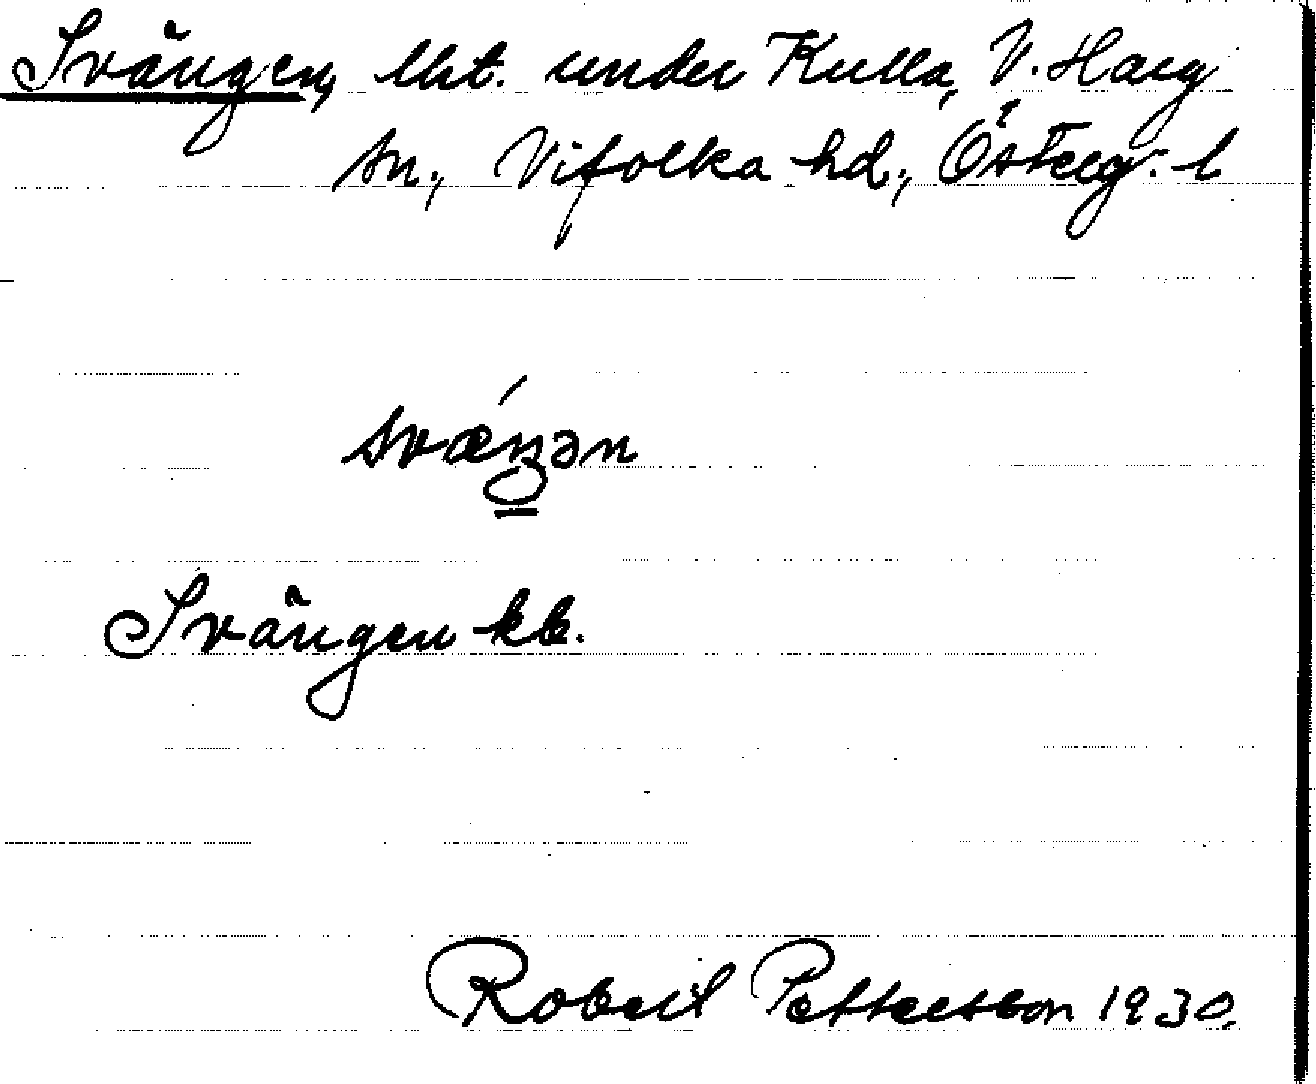 Svängen, lht. under Kulla, V. Harg
sn., Vifolka hd., Österg. l
svǽŋən
Svängen kb.
Robert Pettersson 1930.